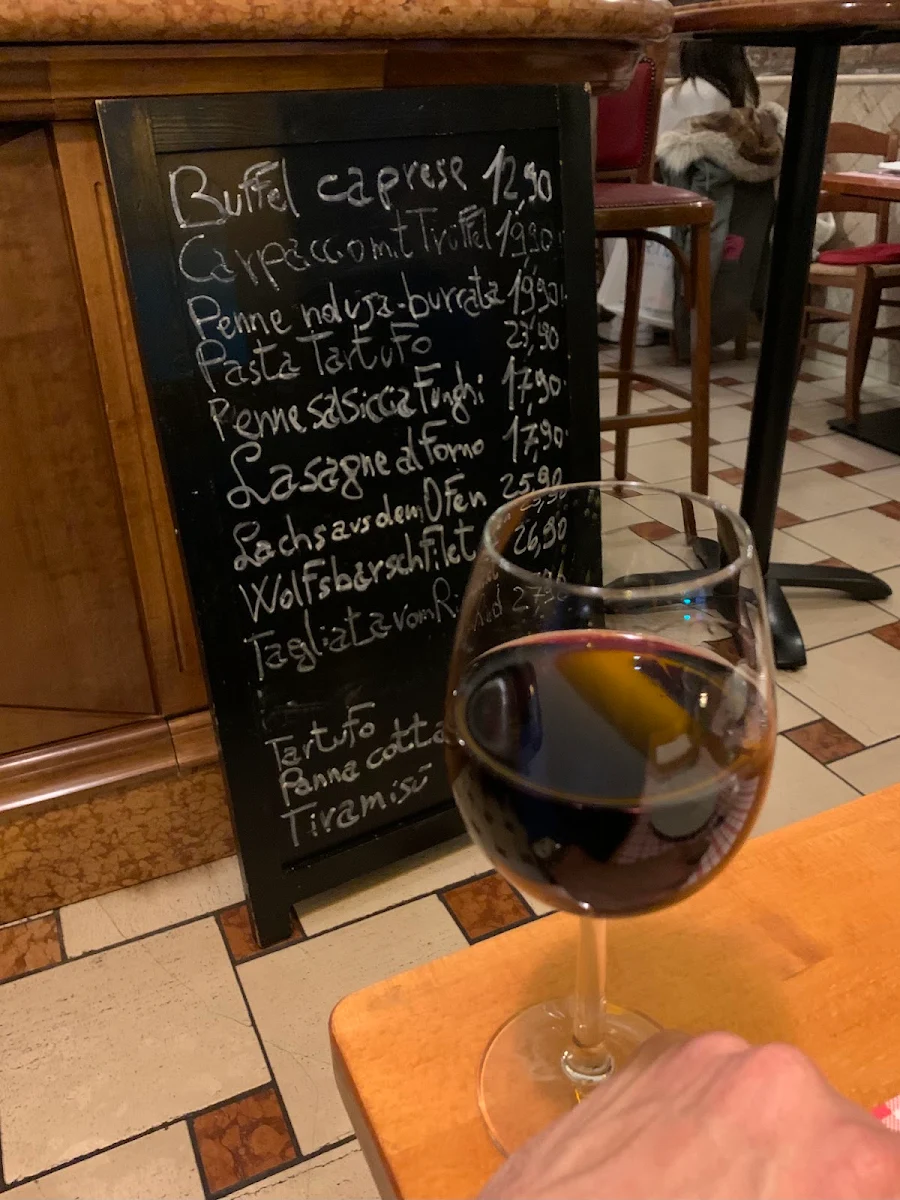 Buffel caprese 12,90
Carpaccio mit Trüffel 19,90
Penne nduja-burrata 19,90
Pasta Tartufo 23,90
Penne salsiccia Funghi 17,90
Lasagne al Forno 17,90
Lachs aus dem Ofen 25,90
Wolfsbarschfilet 26,90
Tagliata vom
Tartufo
Panna cotta
Tiramisú